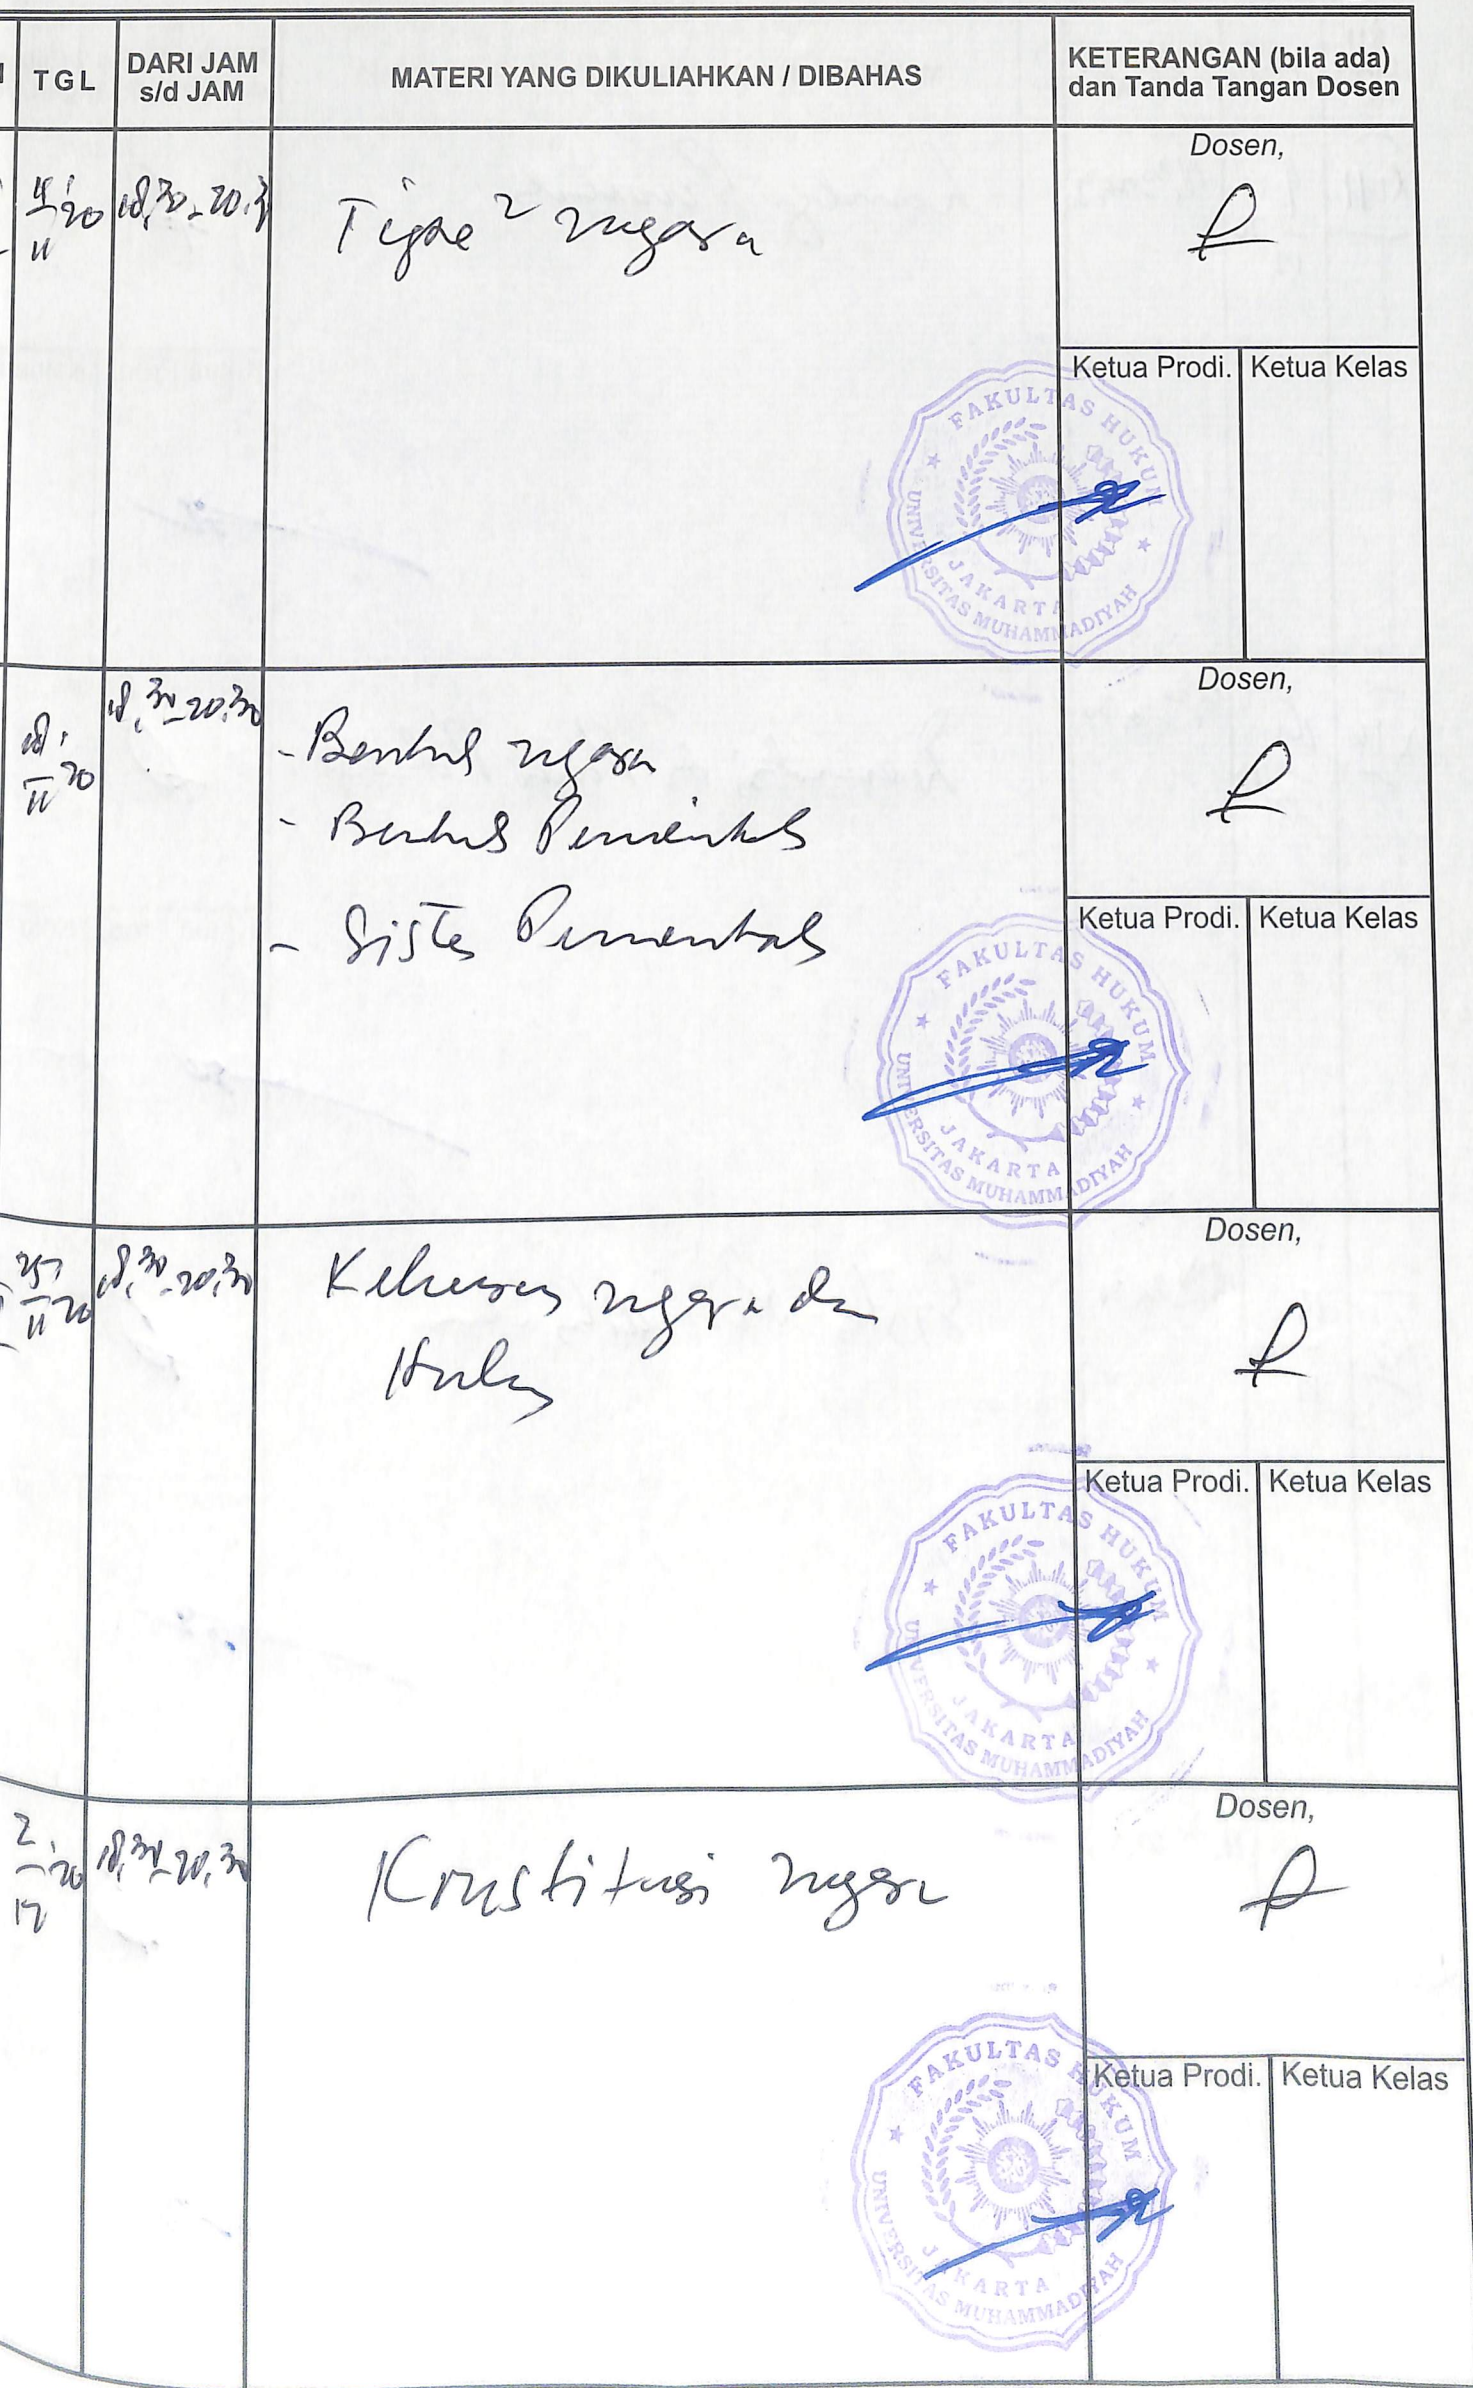 TGL
DARI JAM
s/d JAM
MATERI YANG DIKULIAHKAN / DIBAHAS
KETERANGAN (bila ada)
dan Tanda Tangan Dosen
18.30-20.3
Tipe2 negara
Dosen,
Ketua Prodi. Ketua Kelas
FAKULTAS HUKUM
UNIVERSITAS MUHAMMADIYAH
JAKARTA
18/11 20
18.30-20.30
- Bentuk negara
- Bentuk Pemerintah
- Sistem Pemerintah
Dosen,
Ketua Prodi. Ketua Kelas
FAKULTAS HUKUM
UNIVERSITAS MUHAMMADIYAH
JAKARTA
25/11 20
18.30-20.30
negara dan
Hukum
Dosen,
Ketua Prodi. Ketua Kelas
FAKULTAS HUKUM
UNIVERSITAS MUHAMMADIYAH
JAKARTA
2/12 20
18.30-20.30
Konstitusi negara
Dosen,
Ketua Prodi. Ketua Kelas
FAKULTAS HUKUM
UNIVERSITAS MUHAMMADIYAH
JAKARTA